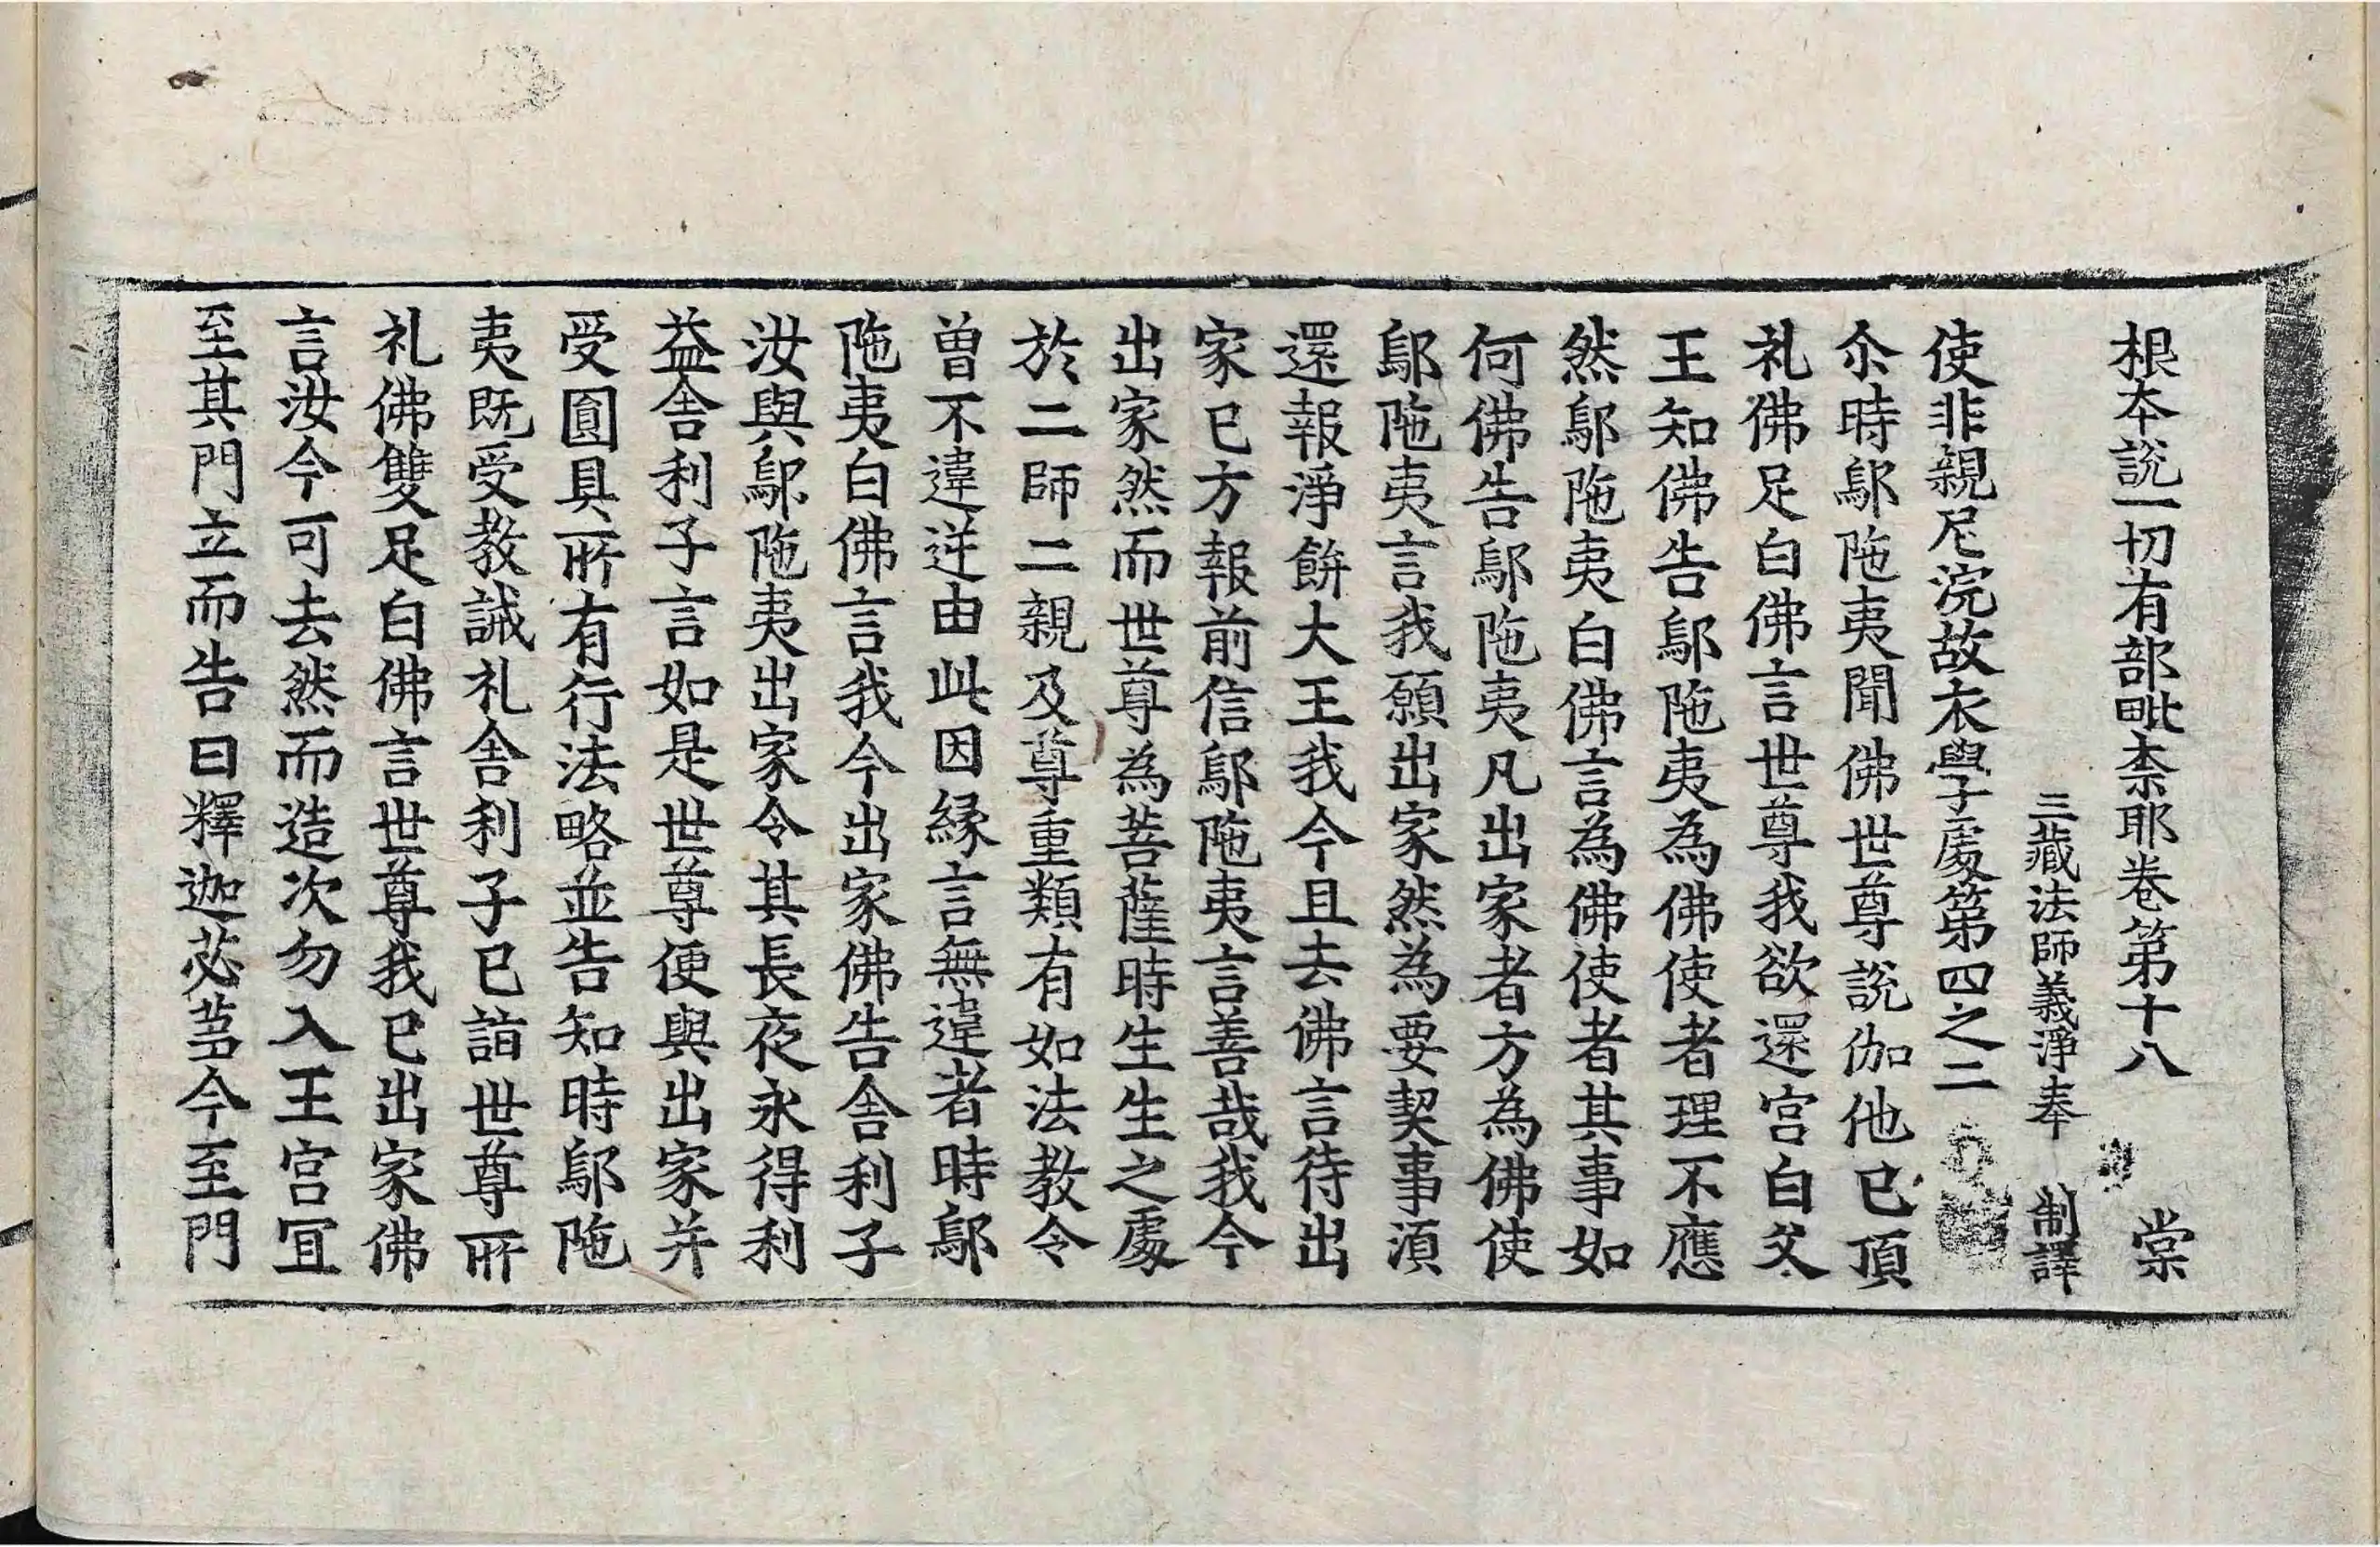 根本說一切有部毗柰耶卷第十八 棠
三藏法師義淨奉 制譯
使非親尼浣故衣學處第四之二
尒時鄔陁夷聞佛世尊說伽他已頂
礼佛足白佛言世尊我欲還宮白父
王知佛告鄔陁夷為佛使者理不應
然鄔陁夷白佛言為佛使者其事如
何佛告鄔陁夷凡出家者方為佛使
鄔陁夷言我願出家然為要契事湏
還報淨餅大王我今且去佛言待出
家已方報前信鄔陁夷言善哉我今
出家然而世尊為菩薩時生生之處
於二師二親及尊重類有如法教令
曾不違逆由此因緣言無違者時鄔
陁夷白佛言我今出家佛告舍利子
汝與鄔陁夷出家令其長夜永得利
益舍利子言如是世尊便與出家并
受圓具所有行法略並告知時鄔陁
夷既受教誡礼舍利子已詣世尊所
礼佛雙足白佛言世尊我已出家佛
言汝今可去然而造次勿入王宮冝
至其門立而告曰釋迦苾蒭今至門